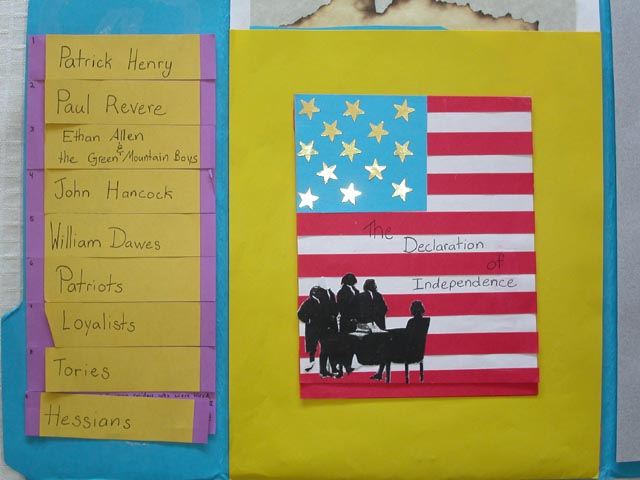 1
Patrick Henry
2
Paul Revere
3
Ethan Allen
&
the Green Mountain Boys
4
John Hancock
5
William Dawes
6
Patriots
7
Loyalists
8
Tories
Hessians
The
Declaration
of
Independence